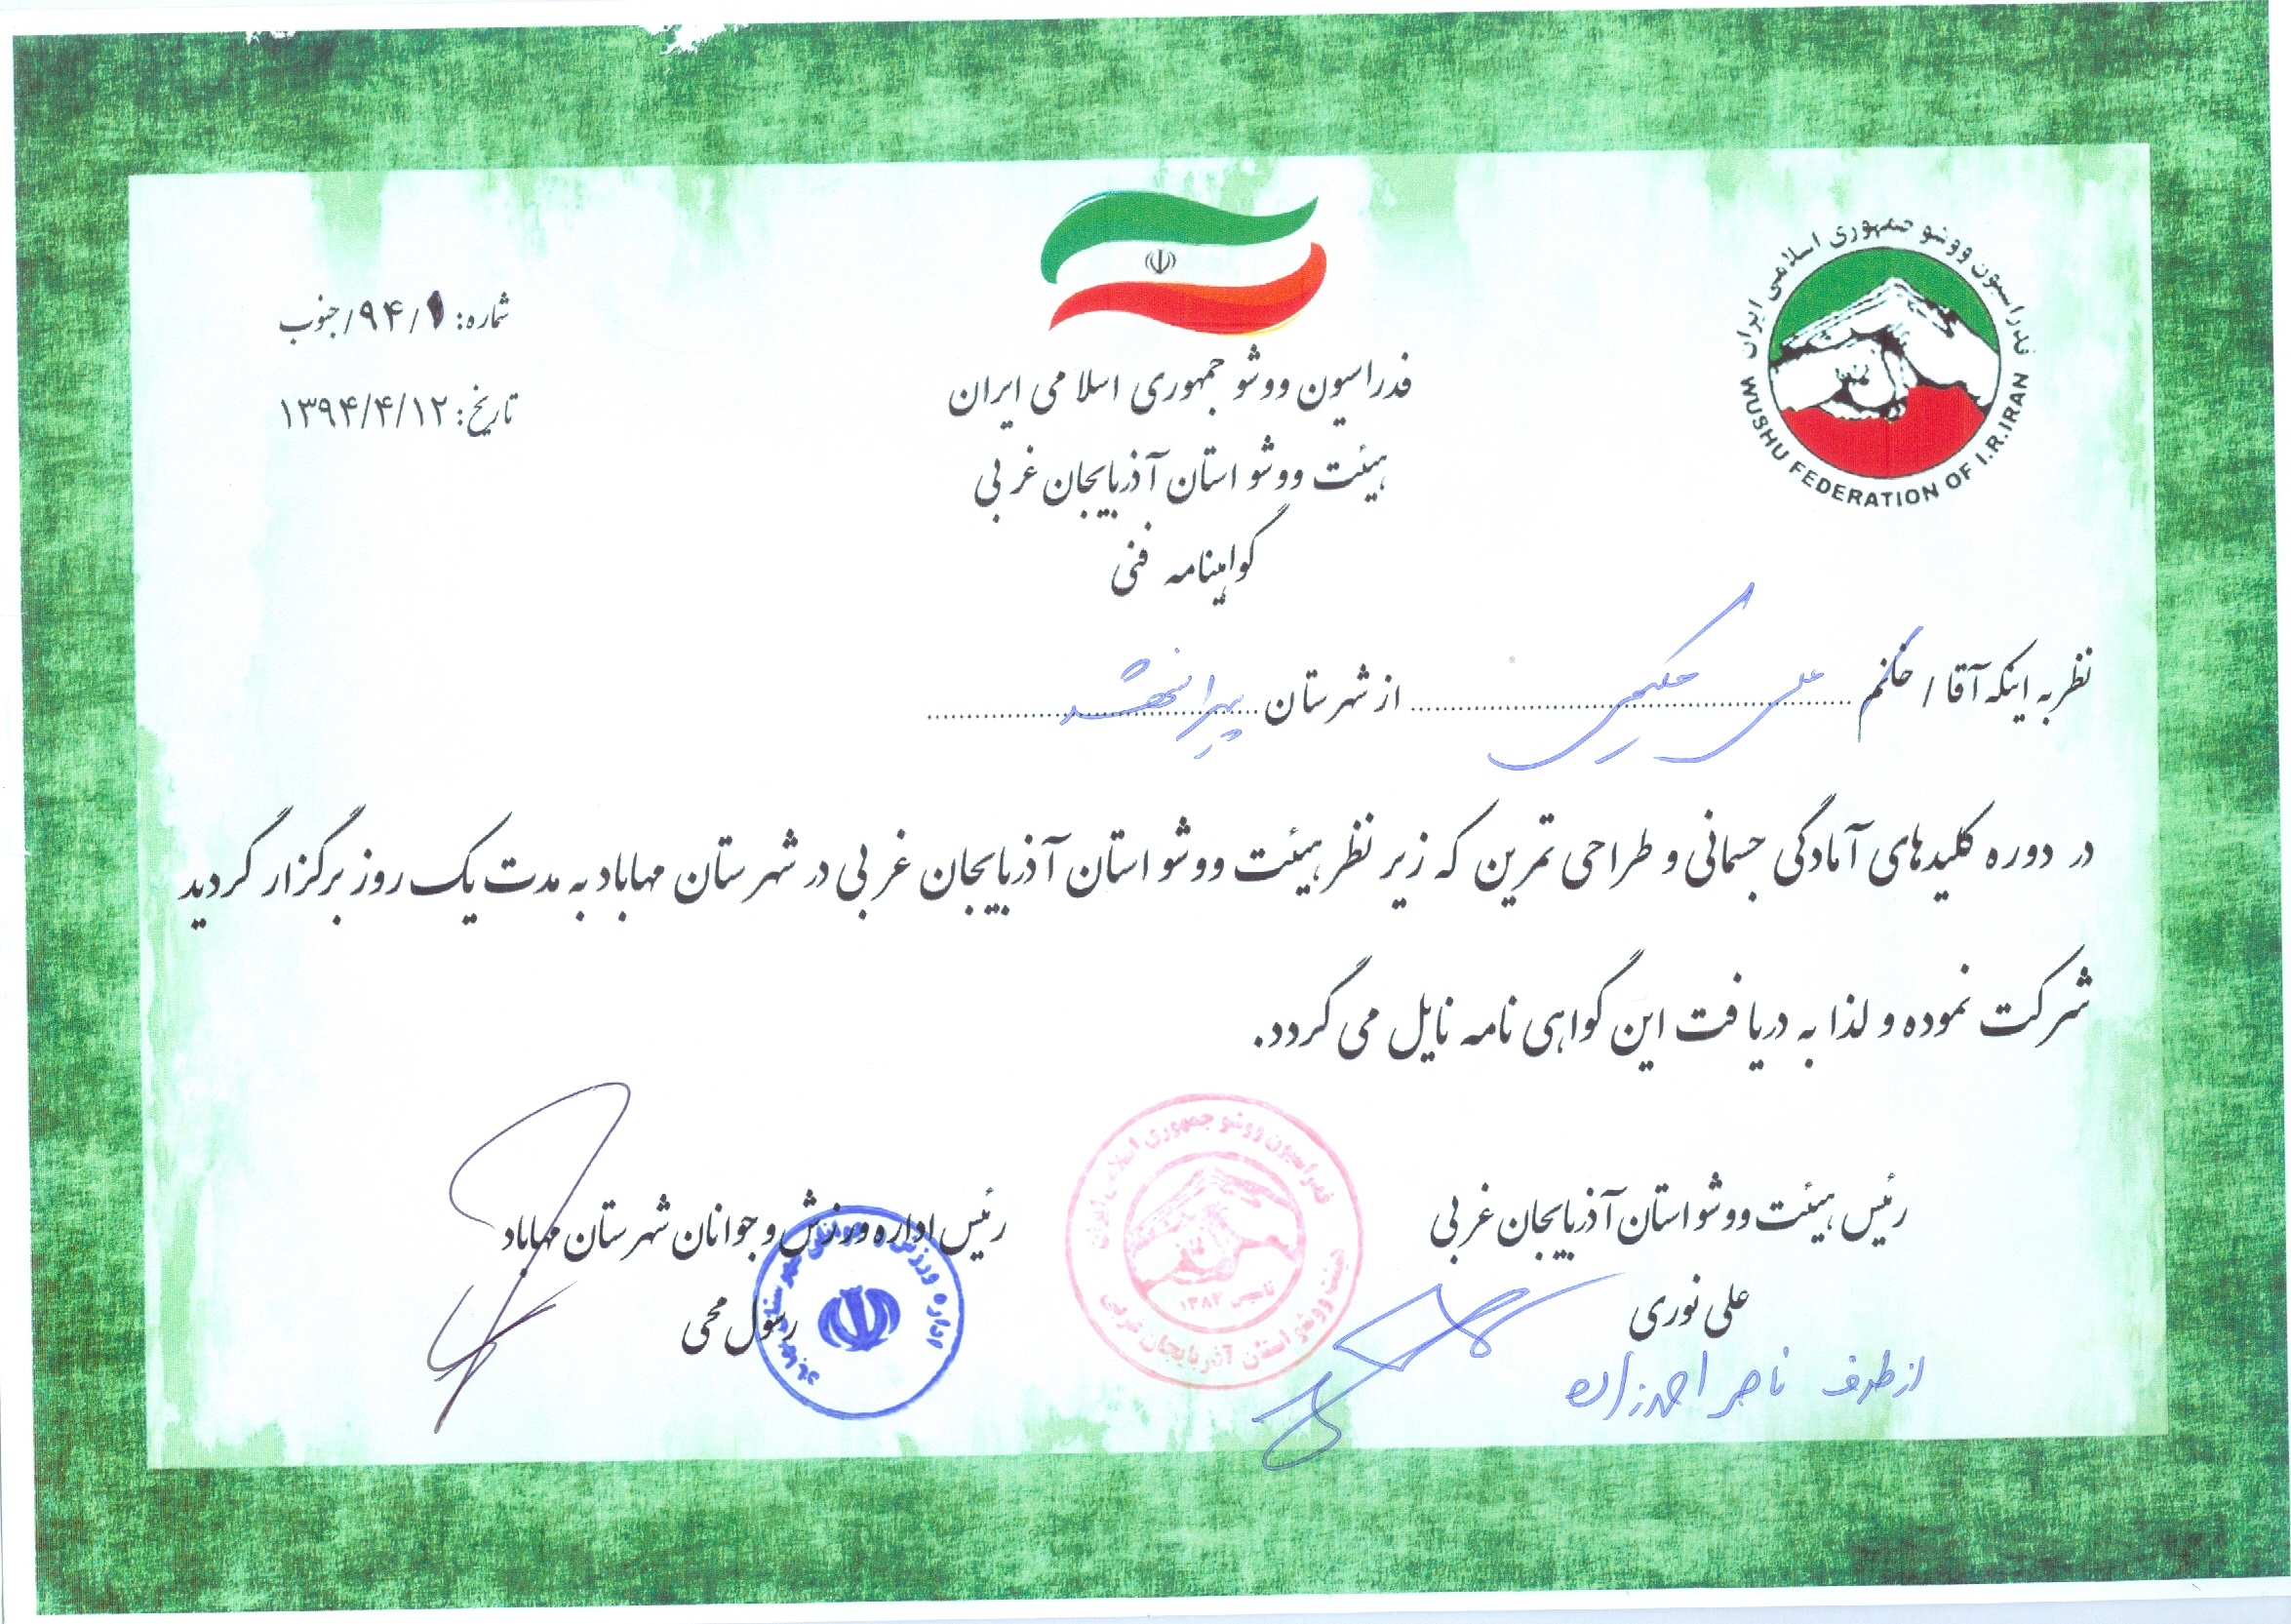 فدراسیون ووشو جمهوری اسلامی ایران
WUSHU FEDERATION OF I.R.IRAN
شماره: ۹۴/۱/جنوب
تاریخ: ۱۳۹۴/۴/۱۲
فدراسیون ووشو جمهوری اسلامی ایران
هیئت ووشو استان آذربایجان غربی
گواهینامه فنی
نظر به اینکه آقا / خانم علی حکیمی از شهرستان پیرانشهر
در دوره کلیدهای آمادگی جسمانی و طراحی تمرین که زیر نظر هیئت ووشو استان آذربایجان غربی در شهرستان مهاباد به مدت یک روز برگزار گردید
شرکت نموده و لذا به دریافت این گواهی نامه نایل می گردد.
رئیس هیئت ووشو استان آذربایجان غربی
علی نوری
از طرف ناصر احمدزاده
فدراسیون ووشو جمهوری اسلامی ایران
تاسیس ۱۳۸۲
هیئت ووشو استان آذربایجان غربی
رئیس اداره ورزش و جوانان شهرستان مهاباد
رسول محی
اداره ورزش و جوانان شهرستان مهاباد